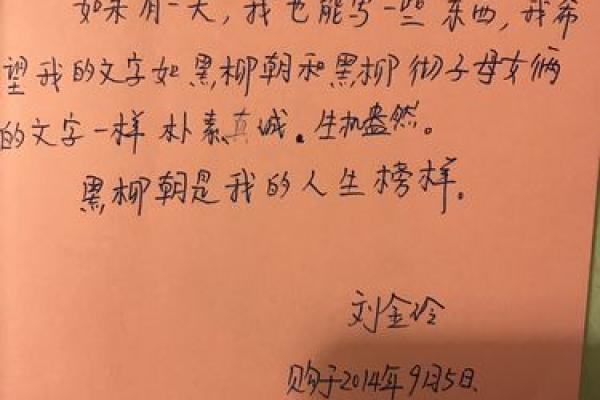 如果有一天，我也能写一些东西，我希
望我的文字如黑柳朝和黑柳彻子母女俩
的文字一样朴素真诚。生机盎然。
黑柳朝是我的人生榜样。
刘金玲
购于2014年9月5日